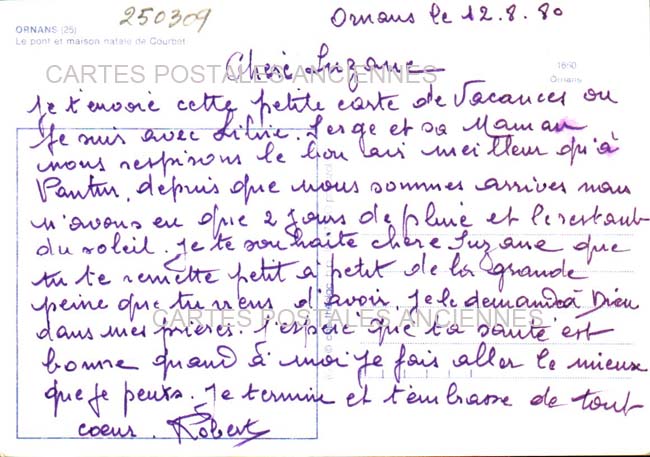 250309
Ornans le 12.8.80
ORNANS (25)
Le pont et maison natale de Courbet
Chere Suzane
CARTES POSTALES ANCIENNES
1650
Ornans
Je t'envoie cette petite carte de Vacances ou
Je suis avec Silvie. Serge et sa Maman
nous respirons le bon air meilleur qu'à
Pantin, depuis que nous sommes arrives nous
n'avons eu que 2 jours de pluie et le restant
du soleil. Je te souhaite chere Suzane que
tu te remette petit a petit de la grande
peine que tu viens d'avoir. Je le demande à Dieu
dans mes prieres. J'espere que ta santé est
CARTES POSTALES ANCIENNES
bonne quand à moi je fais aller le mieux
que je peux. Je termine et t'embrasse de tout
coeur. Robert